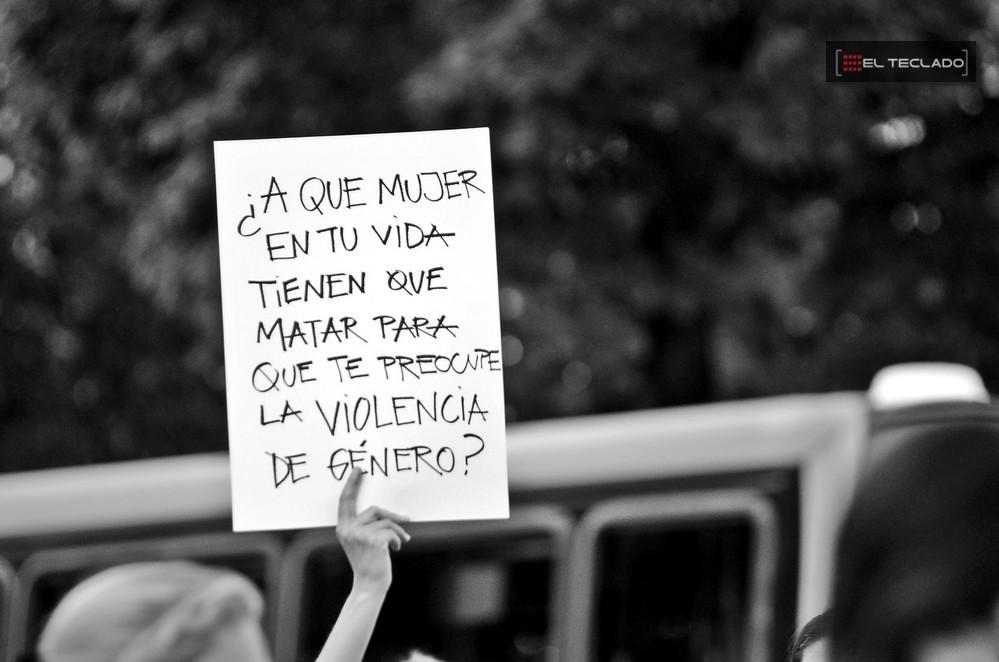 EL TECLADO
¿A QUE MUJER
EN TU VIDA
TIENEN QUE
MATAR PARA
QUE TE PREOCUPE
LA VIOLENCIA
DE GÉNERO?